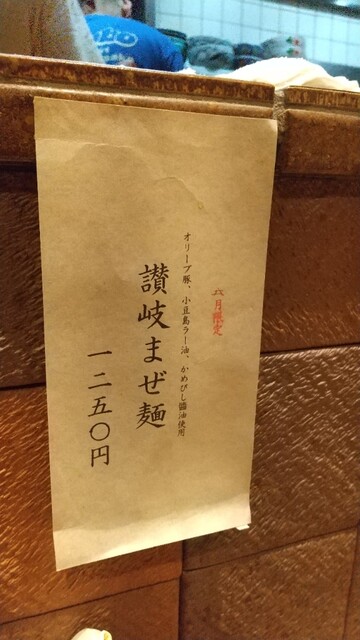 六月限定
オリーブ豚、小豆島ラー油、かめびし醤油使用
讃岐まぜ麺
一二五〇円